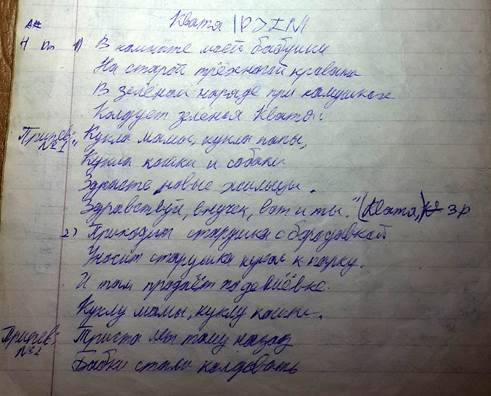 Кватя
1) В комнате моей бабушки
На старой трёхногой кровати
В зелёном наряде при камушках
Колдует зеленья Кватя.
Припев: "Кукла мамы, кукла папы,
№1 Кукла кошки и собаки
Здрасте новые жильцы.
Здравствуй, внучек, вот и ты." (Кватя,) 3р
2) Приходит старушка с бородавкой
Уносит старушка кукол к парку.
И там продаёт по дешёвке
Куклу мамы, куклу кошки.
Припев: Триста лет тому назад
№2 Бабки стали колдовать